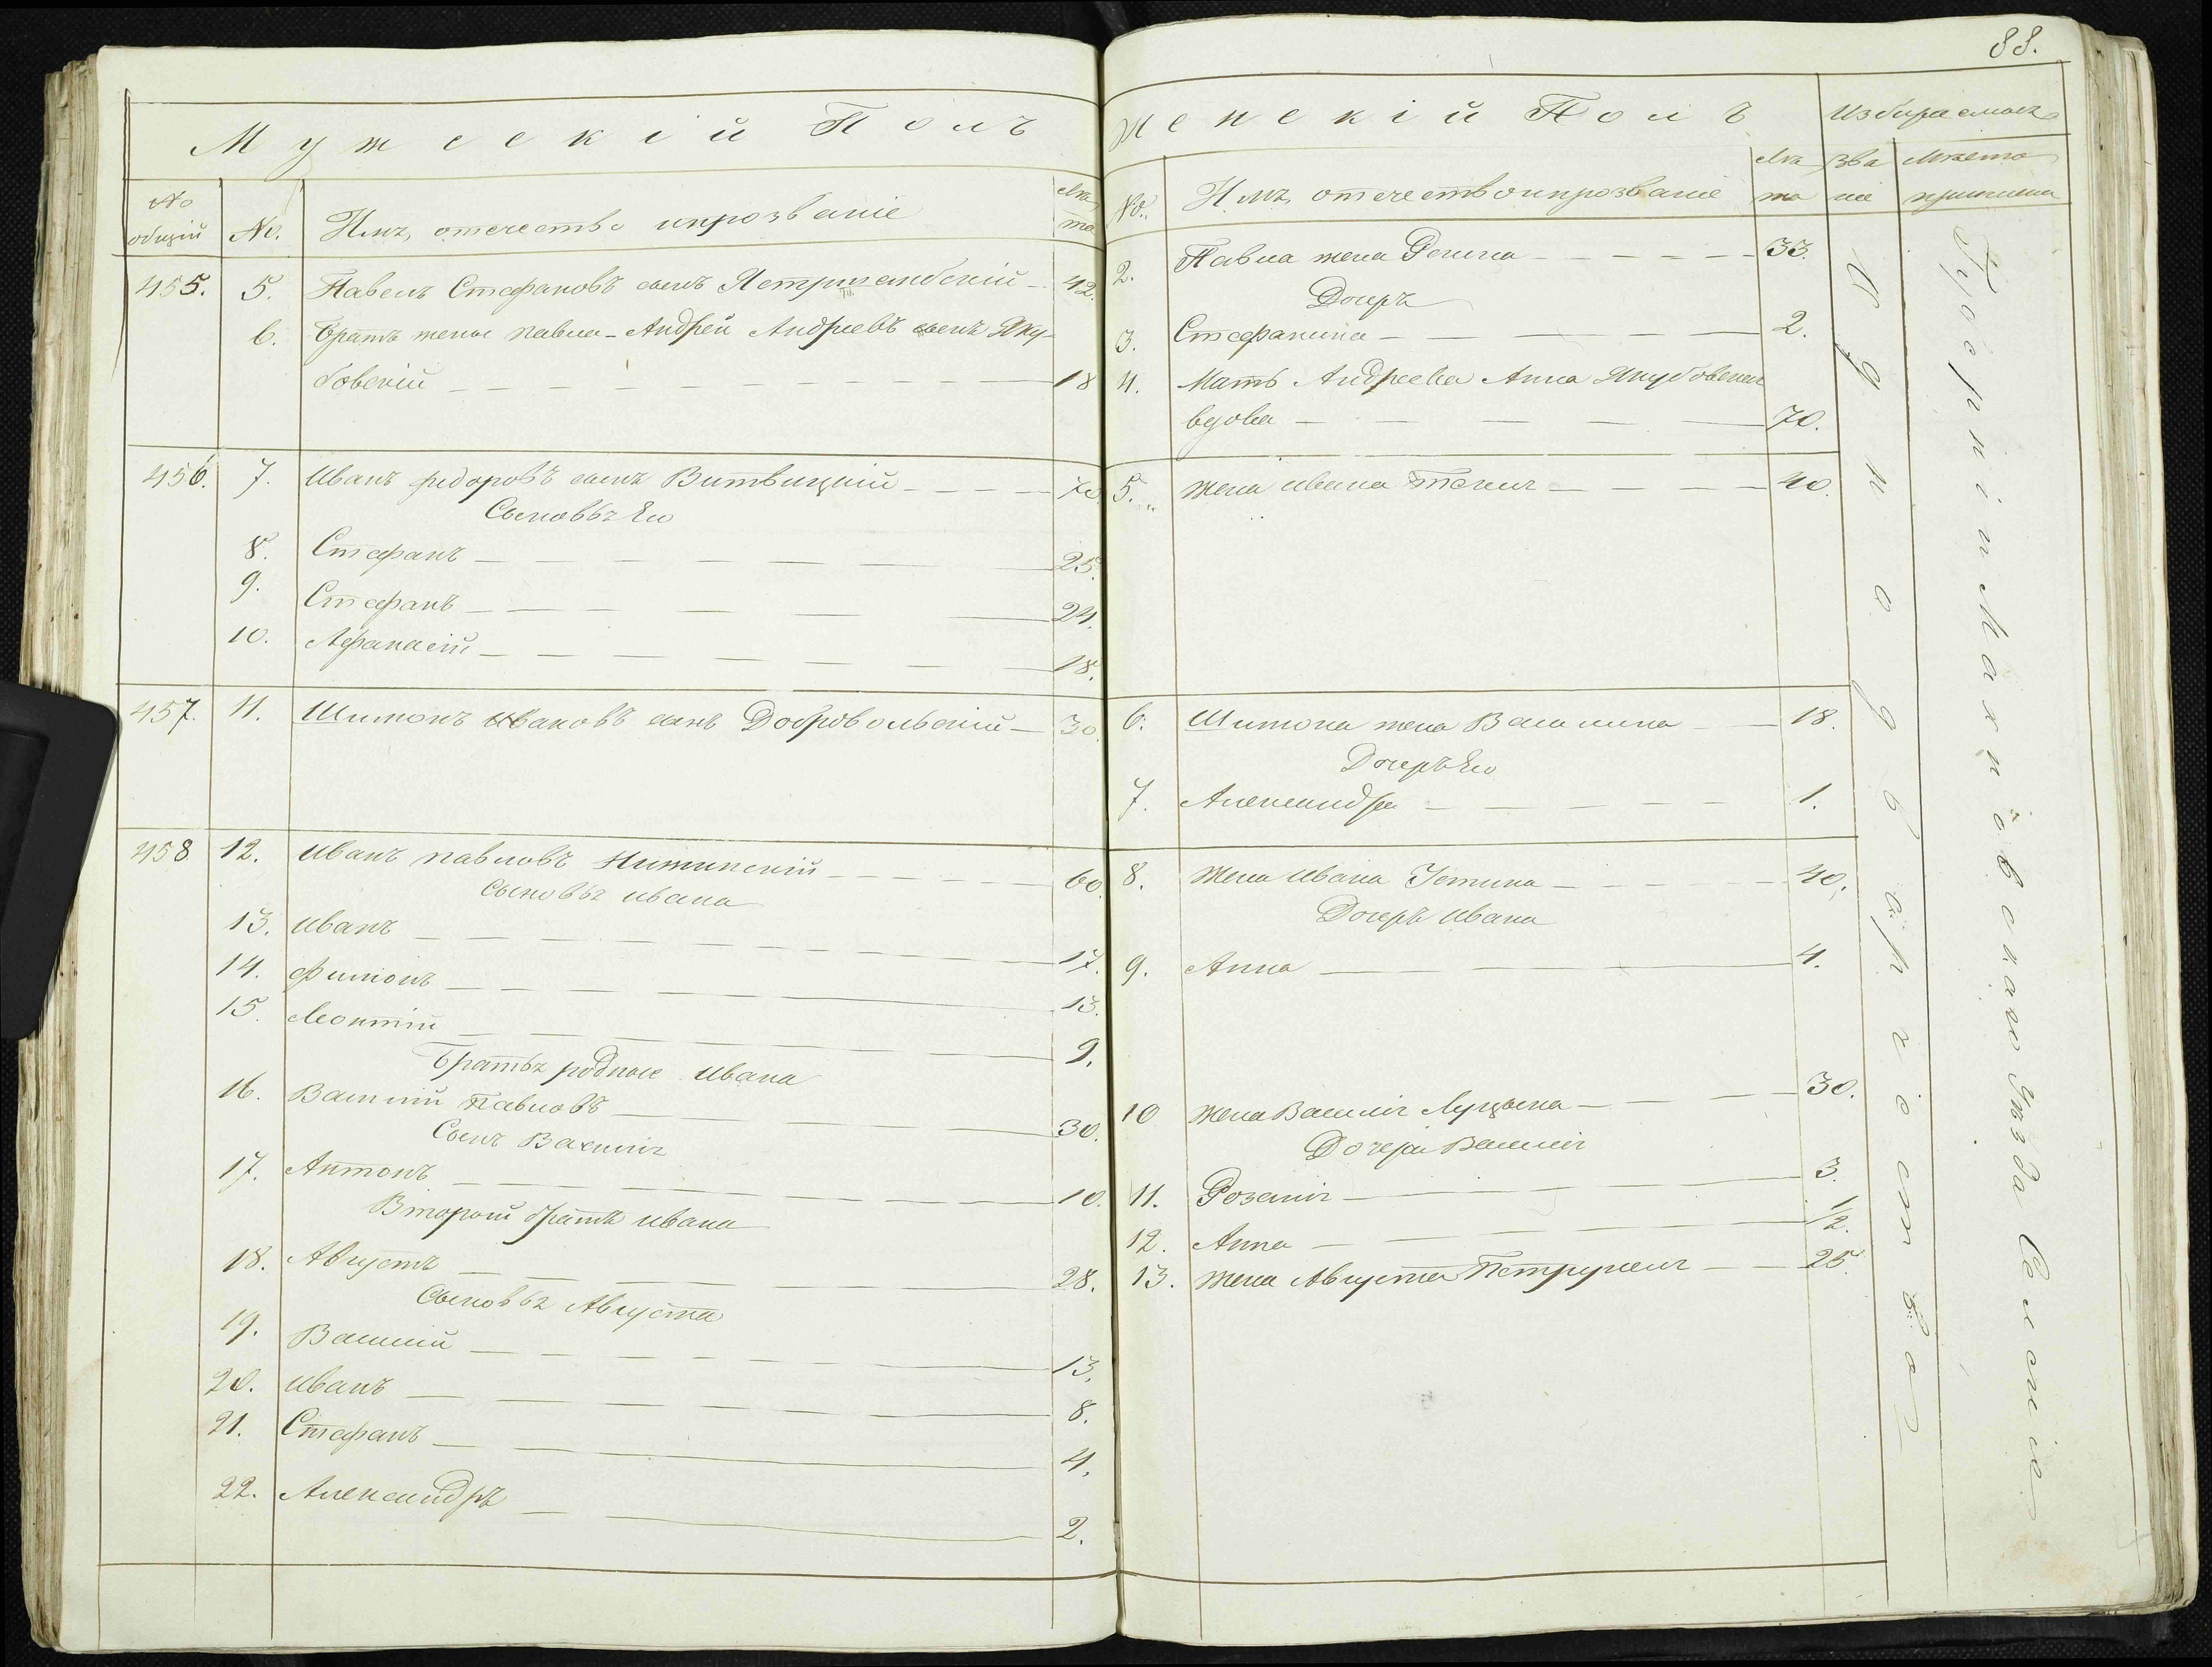 88.
Мужескій Полъ
№ общій
№.
Имя, отечество ипрозваніе
Лѣта
455. 5. Павелъ Стефановъ сынъ Ястржембскій 42.
6. Братъ жены павла Андрей Андреевъ сынъ Яку-
бовскій 18
456. 7. Иванъ федоровъ сынъ Витвицкій 70.
Сыновья Его
8. Стефанъ 25.
9. Стефанъ 24.
10. Афанасій 18.
457. 11. Шимонъ Ивановъ сынъ Добровольскій 30.
458 12. Иванъ павловъ 60.
Сыновья ивана
13. иванъ 17.
14. Филионъ 13.
15. Леонтій 9.
Братья родные Ивана
16. Василій Павловъ 30.
Сынъ Василія
17. Антонъ 10.
Второй братъ ивана
18. Августъ 28.
Сыновья Августа
19. Василій 13.
20. иванъ 8.
21. Стефанъ 4.
22. Александръ 2.
Женскій Полъ
№.
Имя, отечествоипрозваніе
Лѣта
Избираемыя
Зва
ніе
Мѣсто
2. Павла жена Регина 33.
Дочерь
3. Стефанина 2.
4. Мать Андреева Анна Якубовская
вдова 70.
5. жена ивана Текля 40.
6. Шимона жена Василина 18.
Дочерь Его
7. Александра 1.
8. Жена ивана Устина 40.
Дочерь ивана
9. Анна 4.
10 жена Василія Луцына 30.
Дочери Василія
11. Розалія 3.
12. Анна 1/2.
13. жена Августа Петрунеля 25.
Однодворчество
Уѣзда Селеніе